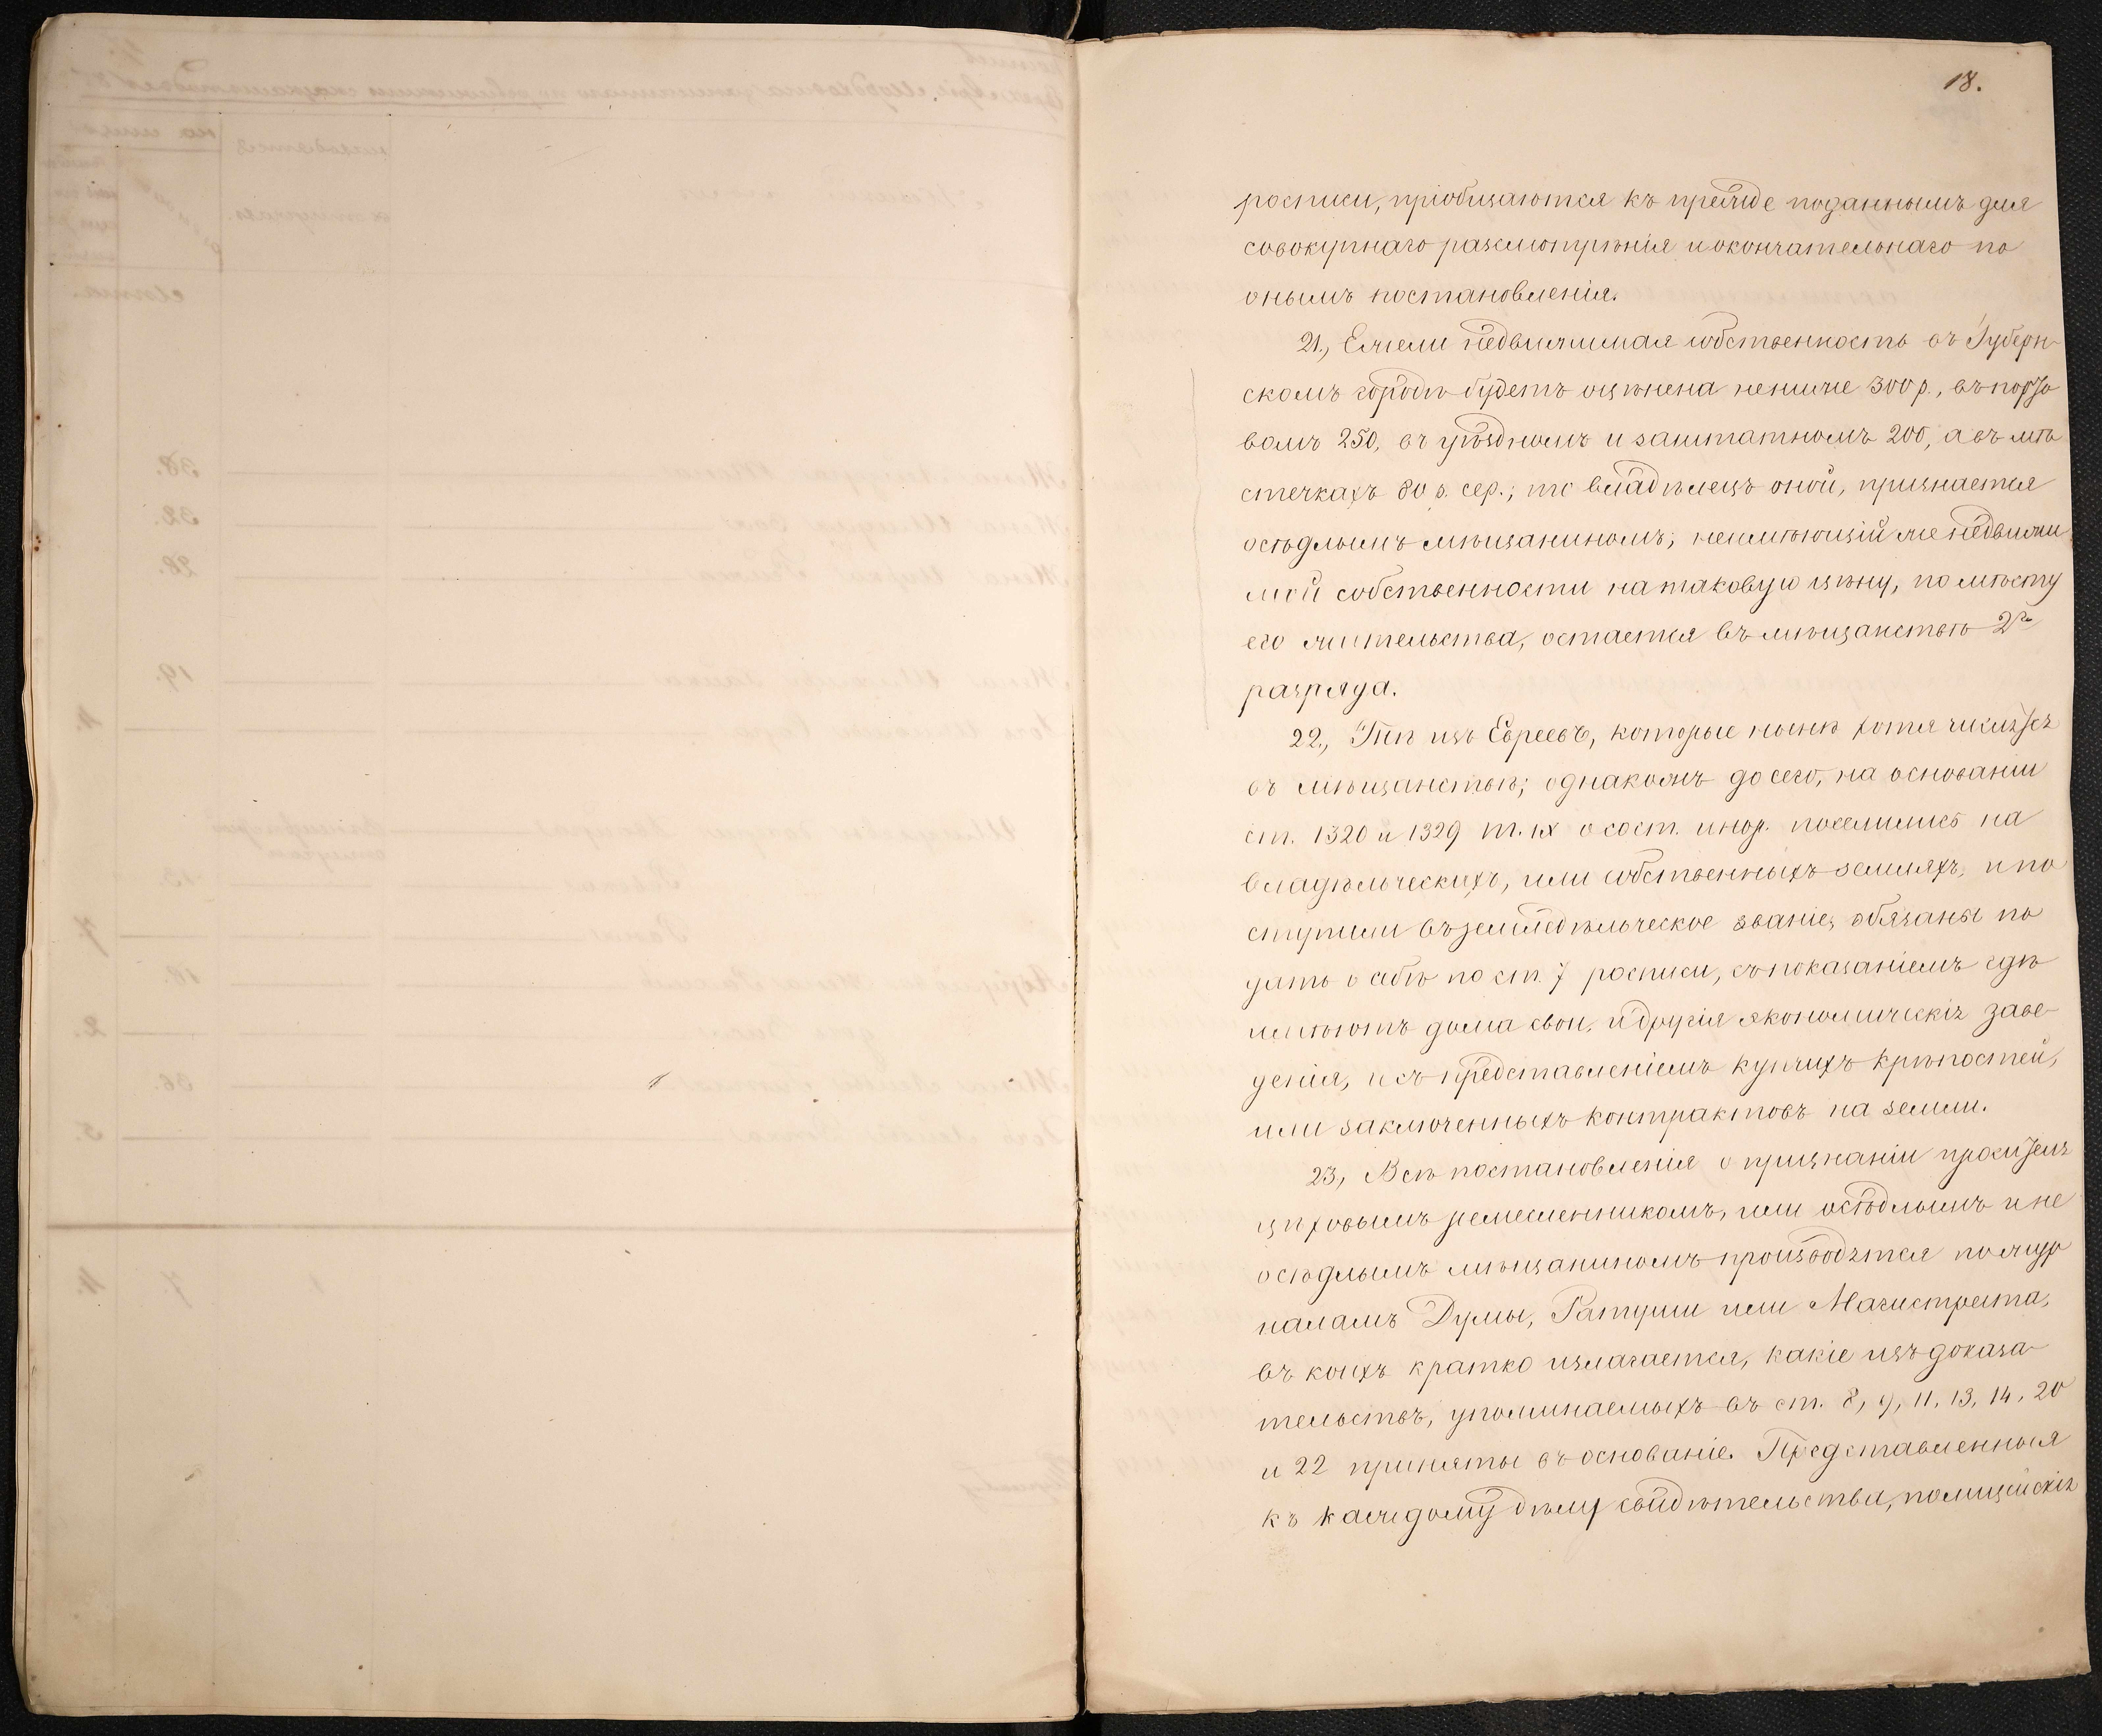 18.
росписи, пріобщаются къ прежде поданнымъ для
совокупнаго разсмотрѣнія и окончательнаго по
онымъ постановленія.
21., Ежели недвижимая собственность въ Губерн-
скомъ городѣ будетъ оцѣнена не ниже 300 р., въ порто
вомъ 250, въ уѣздномъ и заштатномъ 200, а въ мѣ
стечкахъ 80 р. сер.; то владѣлецъ оной, признается
осѣдлымъ мѣщаниномъ; неимѣющій же недвижи
мой собственности на таковую цѣну, по мѣсту
его жительства, остается въ мѣщанствѣ 2го
разряда.
22., Тѣ изъ Евреевъ, которые нынѣ хотя числятся
въ мѣщанствѣ; однакожъ до сего, на основаніи
ст. 1320 и 1329 т. IX о сост. инор. поселились на
владѣльческихъ, или собственныхъ земляхъ, и по
ступили въ земледѣльческое званіе, обязаны по
дать о себѣ по ст. 7 росписи, съ показаніемъ гдѣ
имѣютъ дома свои, и другія экономическія заве-
денія, и съ представленіемъ купчихъ крѣпостей,
или заключенныхъ контрактовъ на земли.
23, Всѣ постановленія о признаніи просителя
цѣховымъ ремесленникомъ, или осѣдлымъ и не
осѣдлымъ мѣщаниномъ производятся по жур
наламъ Думы, Ратуши или Магистрата,
въ коихъ кратко излагается, какіе изъ доказа-
тельствъ, упоминаемыхъ въ ст. 8, 9, 11, 13, 14, 20
и 22 приняты въ основаніе. Представленныя
къ каждому дѣлу свидѣтельства, полицейскія